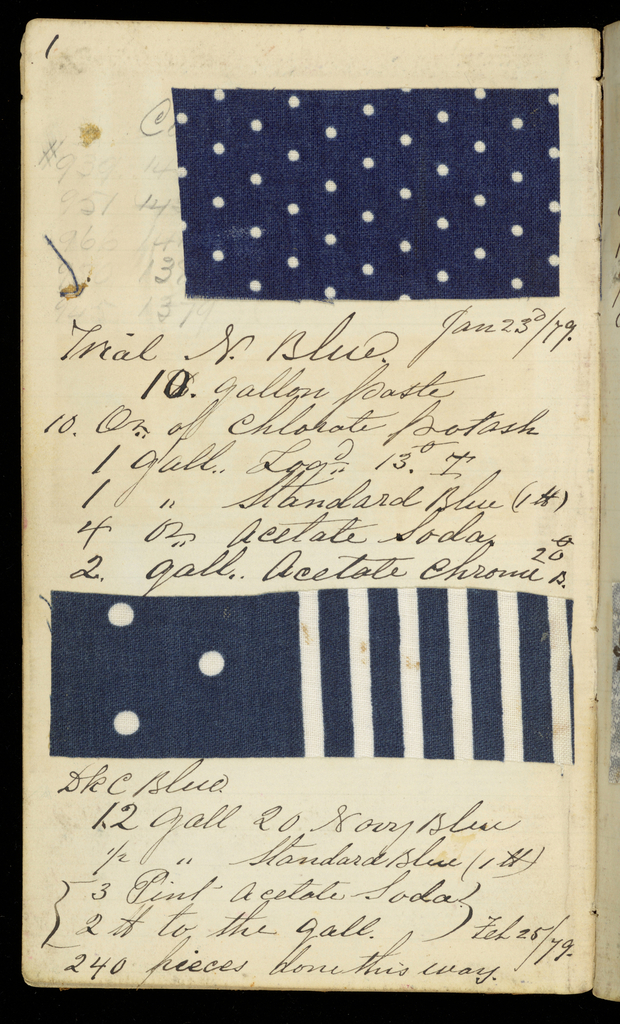 1
Jan 23d/79.
Trial N. Blue.
10. gallon paste
10. Oz. of Chlorate potash
1 gall.. Logd.. 13.° T
1 " Standard Blue (1 ℔)
4 oz. Acetate Soda.
2. gall.. Acetate Chrome 20° B.
Dk C Blue.
12 Gall 20 Navy Blue
1/2 " Standard Blue (1 ℔)
{ 3 Pint Acetate Soda }
{ 2 ℔ to the gall. } Feb 25/79.
240 pieces done this way.